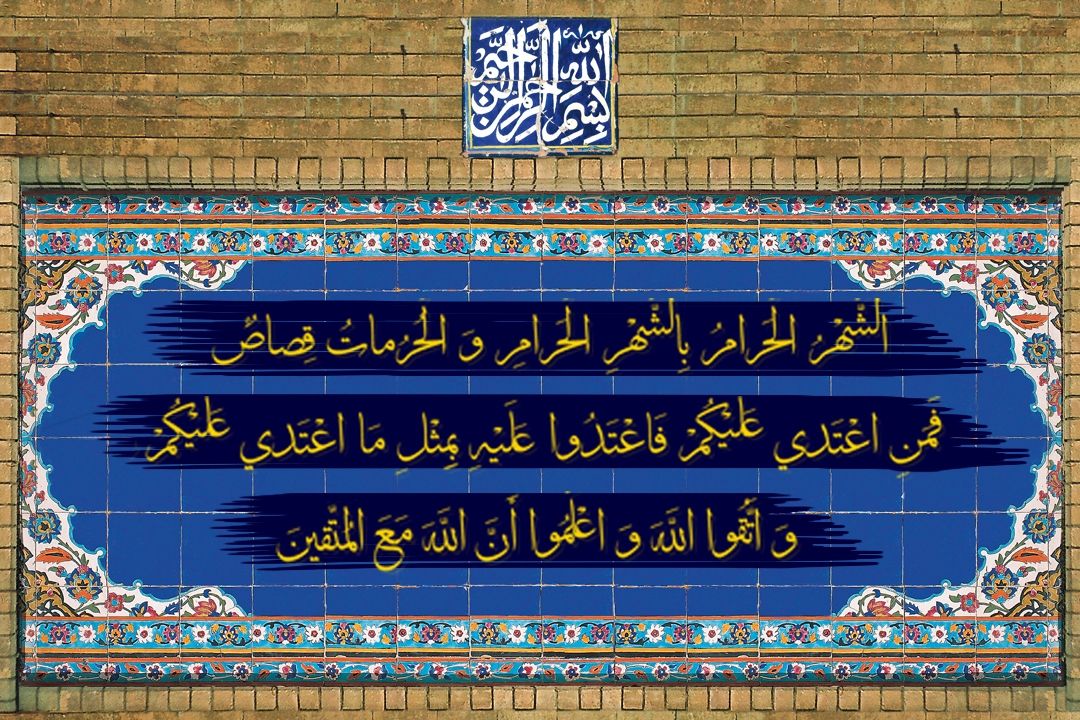 بِسْمِ اللّٰهِ الرَّحْمٰنِ الرَّحِيمِ
الشَّهْرُ الْحَرامُ بِالشَّهْرِ الْحَرامِ وَ الْحُرُماتُ قِصاصٌ
فَمَنِ اعْتَدي عَلَيْكُمْ فَاعْتَدُوا عَلَيْهِ بِمِثْلِ مَا اعْتَدي عَلَيْكُمْ
وَ اتَّقوا اللَّهَ وَ اعْلَمُوا أَنَّ اللَّهَ مَعَ الْمُتَّقينَ